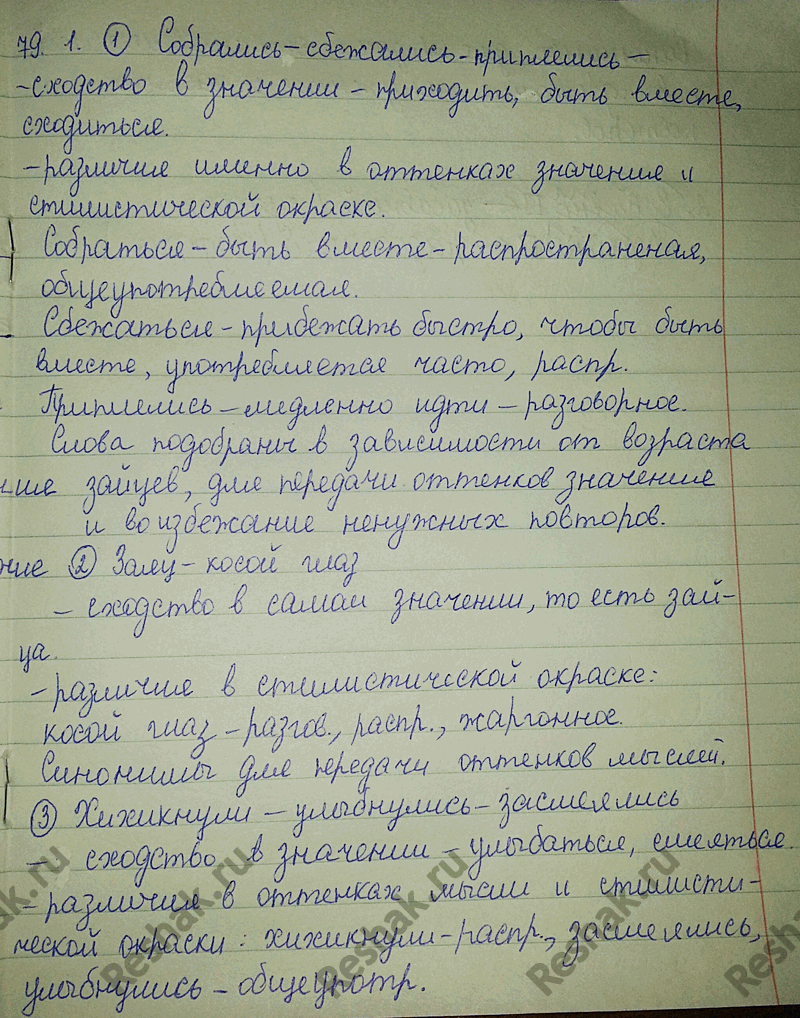 79. 1. ① Собрались – сбежались – приплелись –
- сходство в значении – приходить, быть вместе,
сходиться.
- различия именно в оттенках значения и
стилистической окраске.
Собраться – быть вместе – распространеная,
общеупотребляемая.
Сбежаться – прибежать быстро, чтобы быть
вместе, употребляется часто, распр.
Приплелись – медленно идти – разговорное.
Слова подобраны в зависимости от возраста
ние зайцев, для передачи оттенков значения
и во избежание ненужных повторов.
ние ② Заяц – косой глаз
- сходство в самом значении, то есть зай-
ца.
- различия в стилистической окраске:
косой глаз – разгов., распр., жаргонное.
Синонимы для передачи оттенков мыслей.
③ Хихикнули – улыбнулись – засмеялись
- сходство в значении – улыбаться, смеяться.
- различия в оттенках мысли и стилисти-
ческой окраски: хихикнули – распр., засмеялись,
улыбнулись – общеупотр.
Reshak.ru
Reshak.ru
Reshak.ru
Reshak.ru